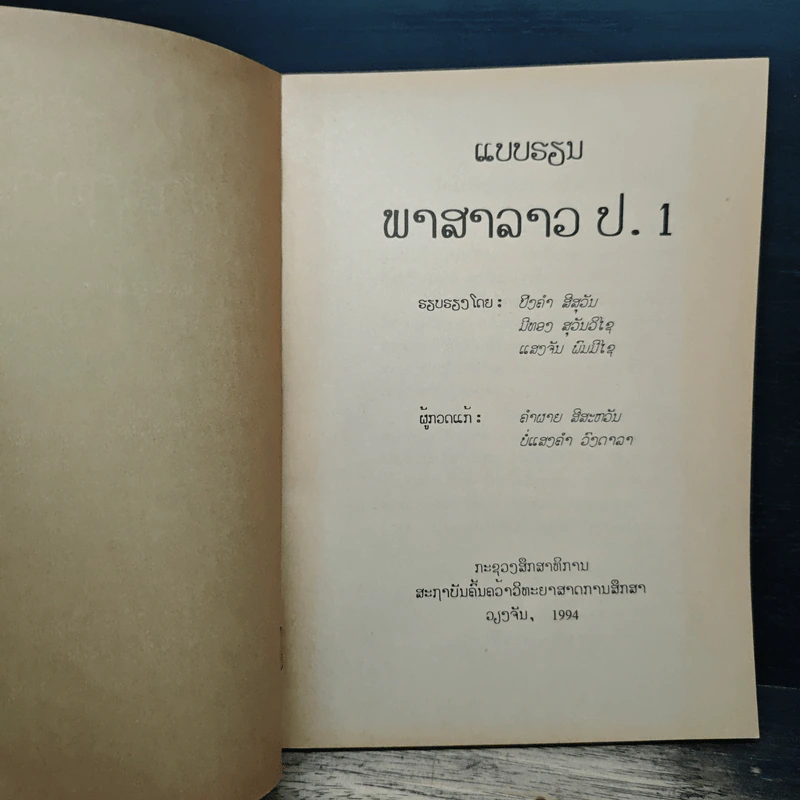 ແບບຮຽນ
ພາສາລາວ ປ. 1
ຮຽບຮຽງໂດຍ: ປິງຄຳ ສີສຸວັນ
ມີທອງ ສຸວັນວິໄຊ
ແສງຈັນ ພົມມີໄຊ
ຜູ້ກວດແກ້: ຄຳຜາຍ ສີສະຫວັນ
ບໍ່ແສງຄຳ ວົງດາລາ
ກະຊວງສຶກສາທິການ
ສະຖາບັນຄົ້ນຄວ້າວິທະຍາສາດການສຶກສາ
ວຽງຈັນ, 1994